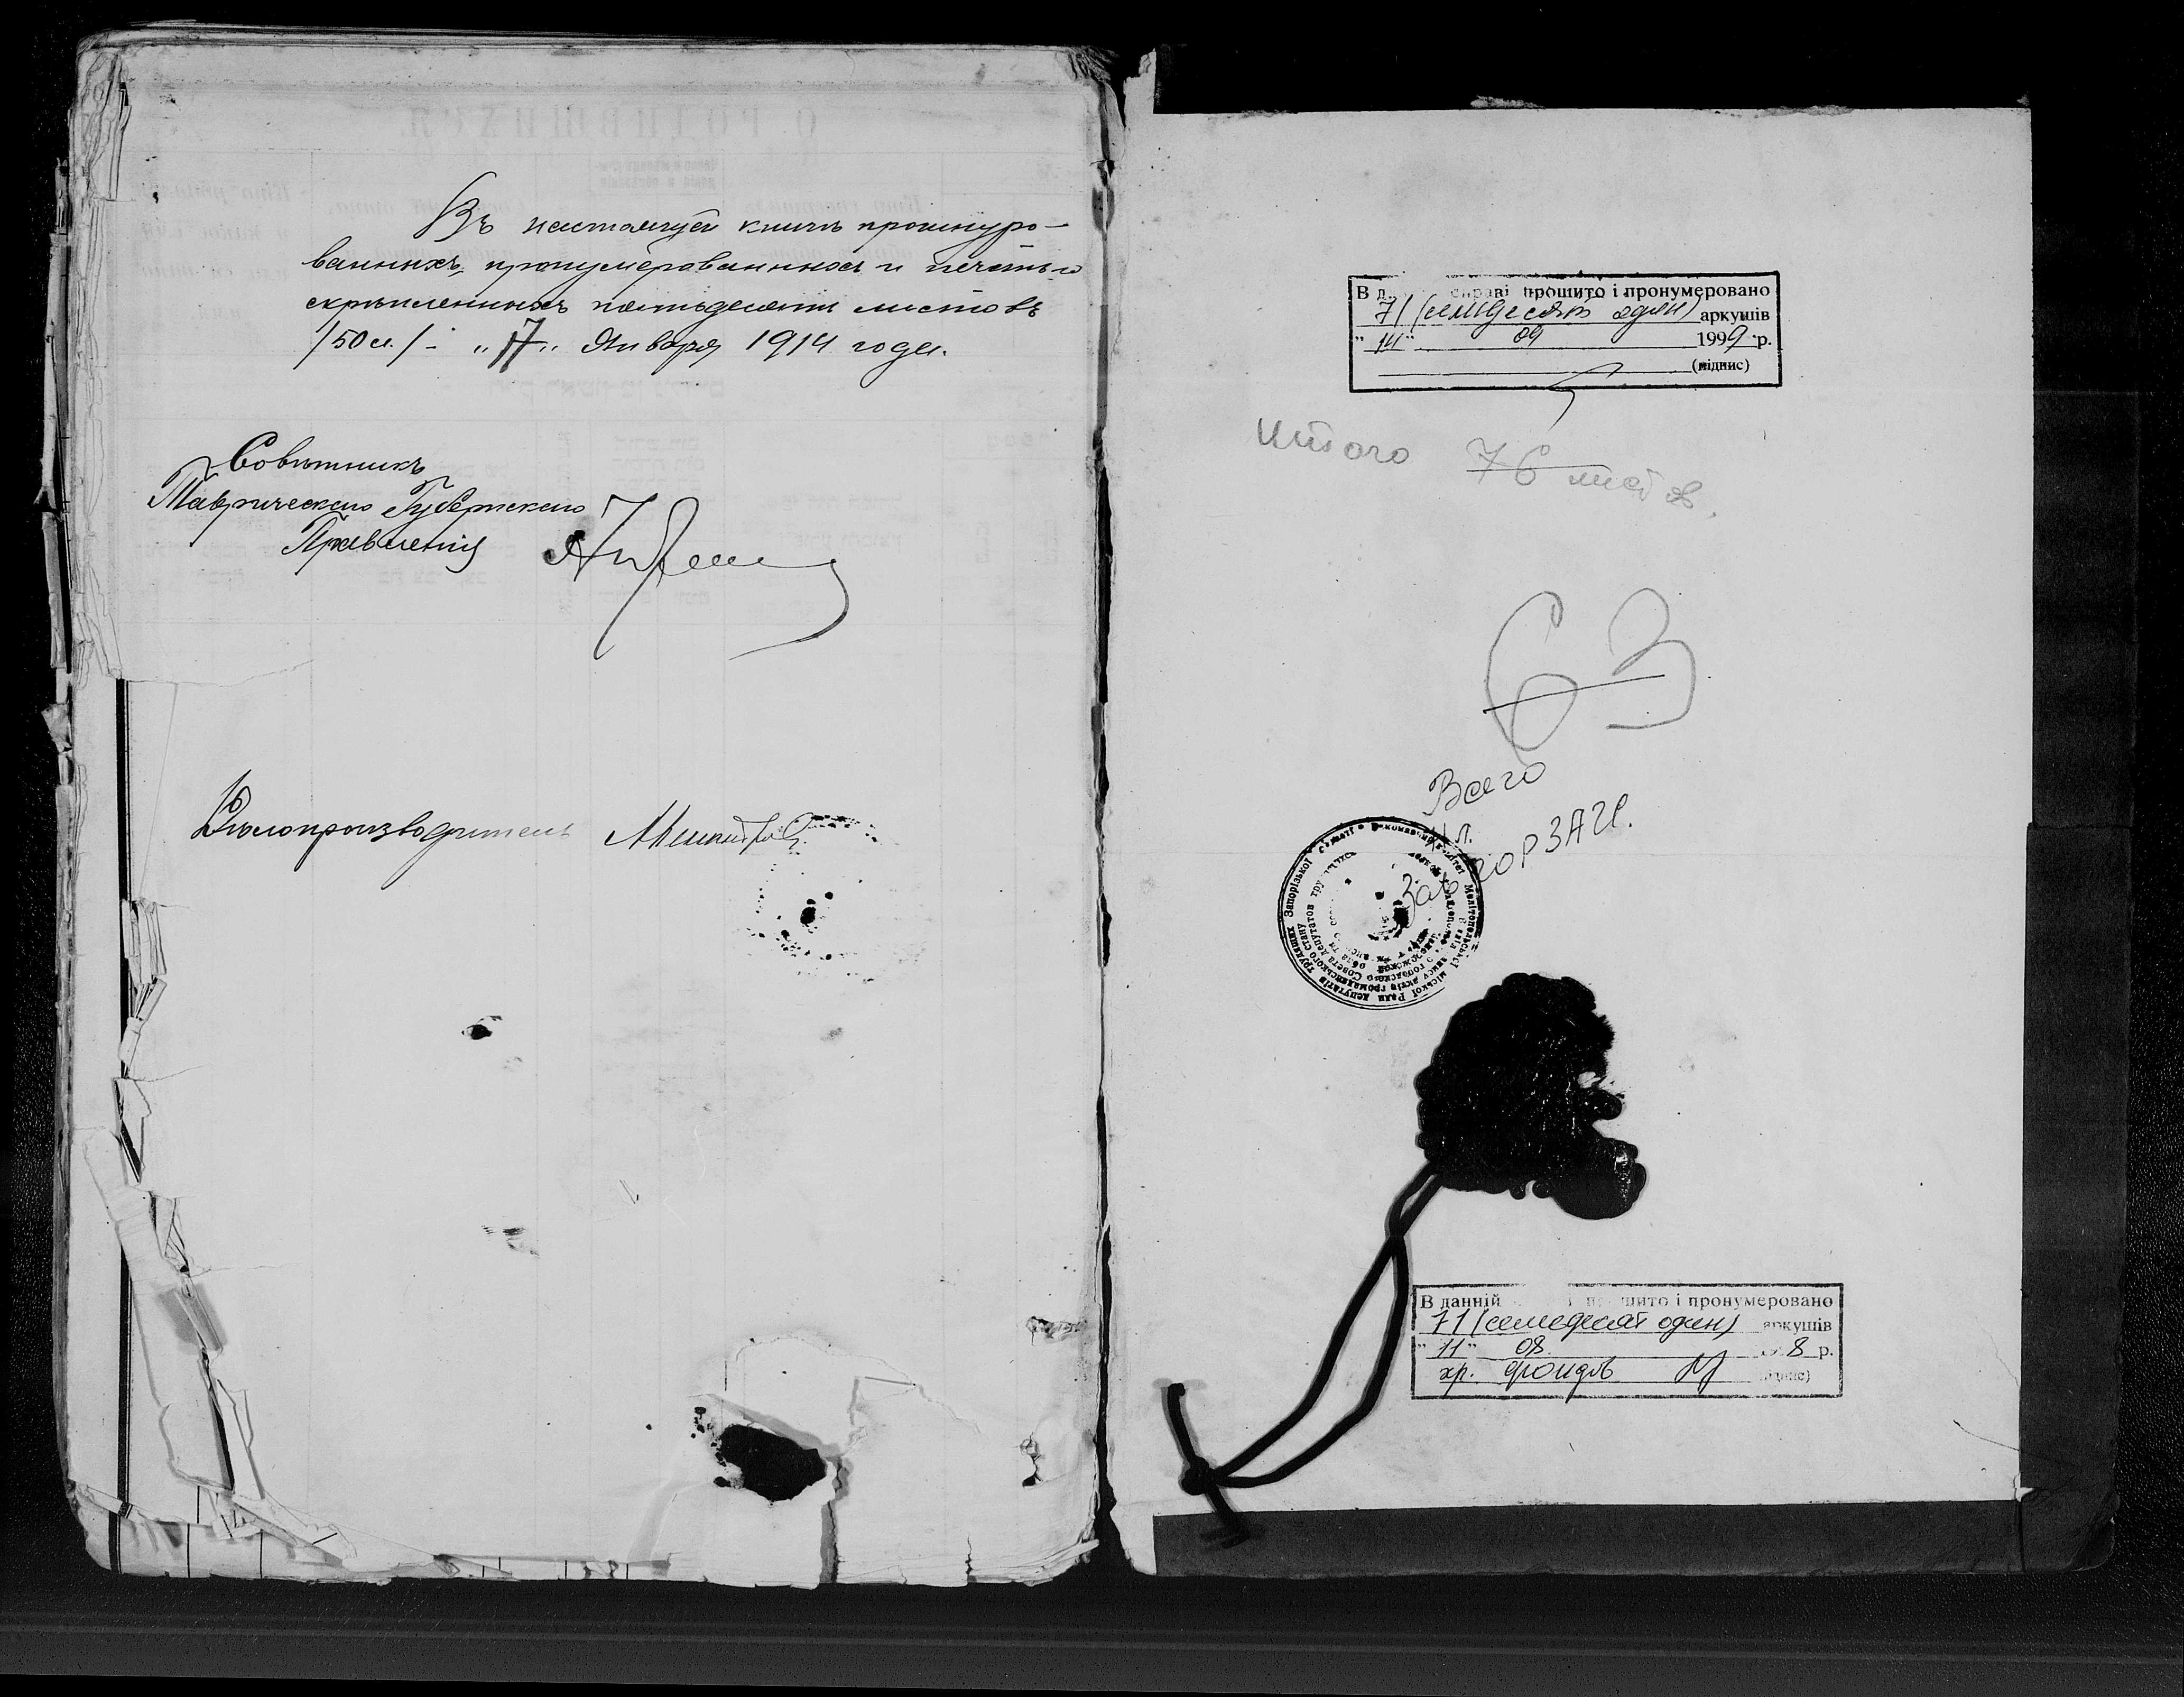 Въ настоящей книгѣ прошнуро-
ванныхъ, пронумерованныхъ и печатью
скрѣпленныхъ пятьдесятъ листовъ
/50 л./ - „17„ Января 1914 года.
Совѣтникъ
Таврическаго Губернскаго
Правленія
Дѣлопроизводитель
В справі прошито і пронумеровано
71 (семдесят один) аркушів
" 14 " 09 1999 р.
(підпис)
Итого 76 листов.
63
Всего
л.
Зав ГОРЗАГС.
В данній прошито і пронумеровано
71 (семдесят один) аркушів
" 11 " 08 8 р.
хр. фондів